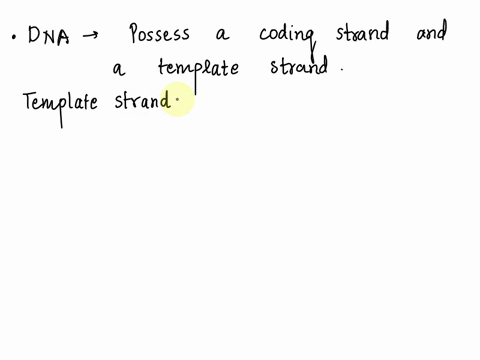 • DNA → Possess a coding strand and
a template strand.
Template strand